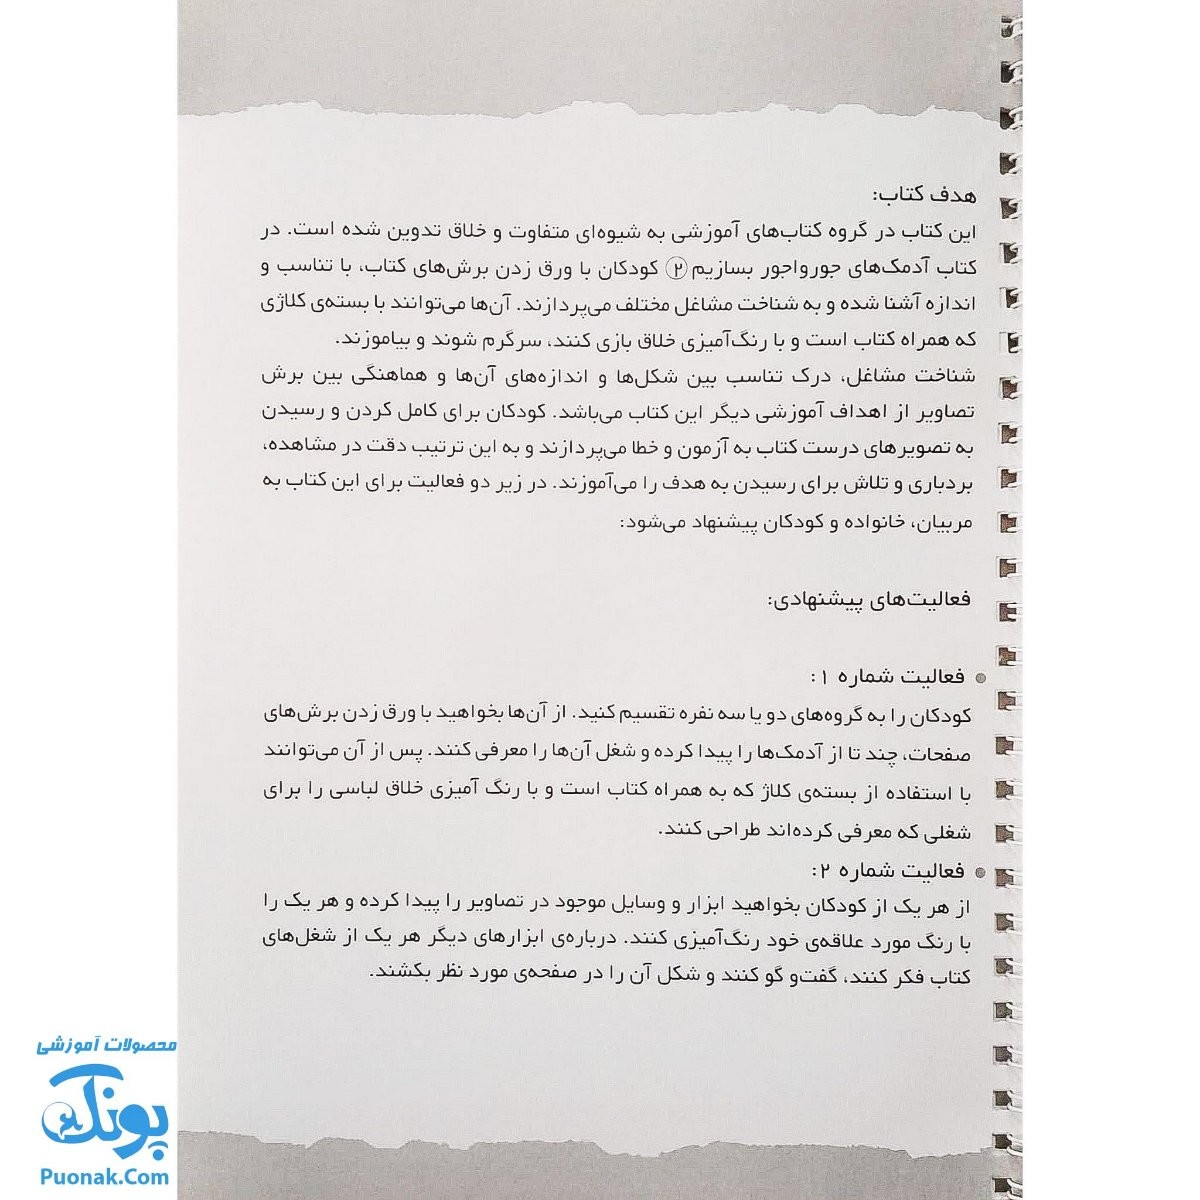 هدف کتاب:
این کتاب در گروه کتاب‌های آموزشی به شیوه‌ای متفاوت و خلاق تدوین شده است. در
کتاب آدمک‌های جورواجور بسازیم ② کودکان با ورق زدن برش‌های کتاب، با تناسب و
اندازه آشنا شده و به شناخت مشاغل مختلف می‌پردازند. آن‌ها می‌توانند با بسته‌ی کلاژی
که همراه کتاب است و با رنگ‌آمیزی خلاق بازی کنند، سرگرم شوند و بیاموزند.
شناخت مشاغل، درک تناسب بین شکل‌ها و اندازه‌های آن‌ها و هماهنگی بین برش
تصاویر از اهداف آموزشی دیگر این کتاب می‌باشد. کودکان برای کامل کردن و رسیدن
به تصویرهای درست کتاب به آزمون و خطا می‌پردازند و به این ترتیب دقت در مشاهده،
بردباری و تلاش برای رسیدن به هدف را می‌آموزند. در زیر دو فعالیت برای این کتاب به
مربیان، خانواده و کودکان پیشنهاد می‌شود:
فعالیت‌های پیشنهادی:
● فعالیت شماره ۱:
کودکان را به گروه‌های دو یا سه نفره تقسیم کنید. از آن‌ها بخواهید با ورق زدن برش‌های
صفحات، چند تا از آدمک‌ها را پیدا کرده و شغل آن‌ها را معرفی کنند. پس از آن می‌توانند
با استفاده از بسته‌ی کلاژ که به همراه کتاب است و با رنگ آمیزی خلاق لباسی را برای
شغلی که معرفی کرده‌اند طراحی کنند.
● فعالیت شماره ۲:
از هر یک از کودکان بخواهید ابزار و وسایل موجود در تصاویر را پیدا کرده و هر یک را
با رنگ مورد علاقه‌ی خود رنگ‌آمیزی کنند. درباره‌ی ابزارهای دیگر هر یک از شغل‌های
کتاب فکر کنند، گفت‌و گو کنند و شکل آن را در صفحه‌ی مورد نظر بکشند.
محصولات آموزشی
پونک
Puonak.Com